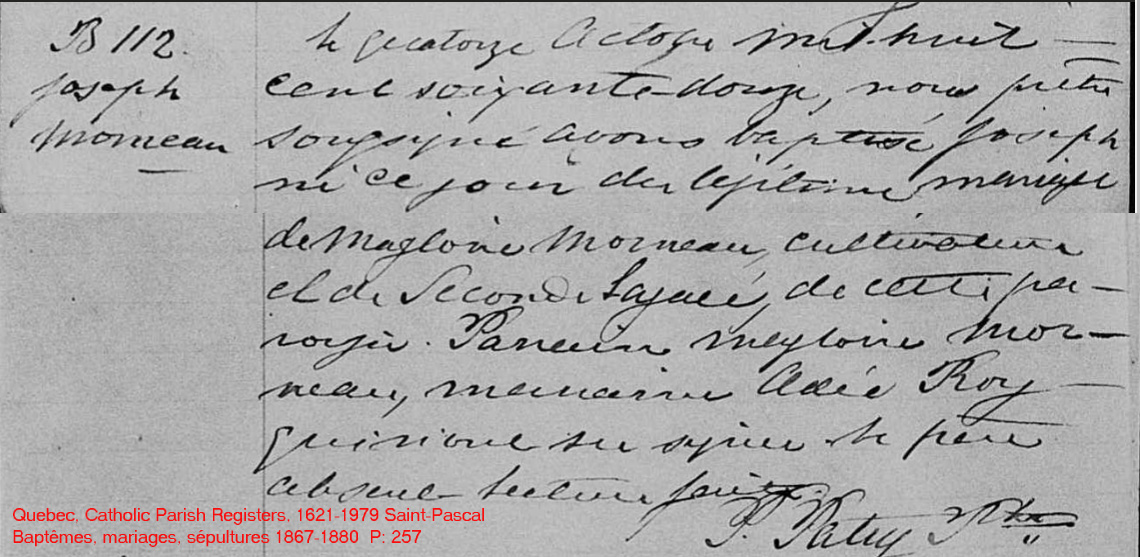 B 112.
Joseph
Morneau
Le quatorze Octobre mil huit —
cent soixante-douze, nous prêtre
soussigné avons baptisé Joseph
né ce jour du légitime mariage
de Magloire Morneau, cultivateur
et de Seconde Lajoie, de cette pa-
roisse. Parrain Magloire Mor-
neau, marraine Adée Roy —
qui n'ont su signer le père
absent - lecture faite.
P. Patry Ptre
Quebec, Catholic Parish Registers, 1621-1979 Saint-Pascal
Baptêmes, mariages, sépultures 1867-1880 P: 257